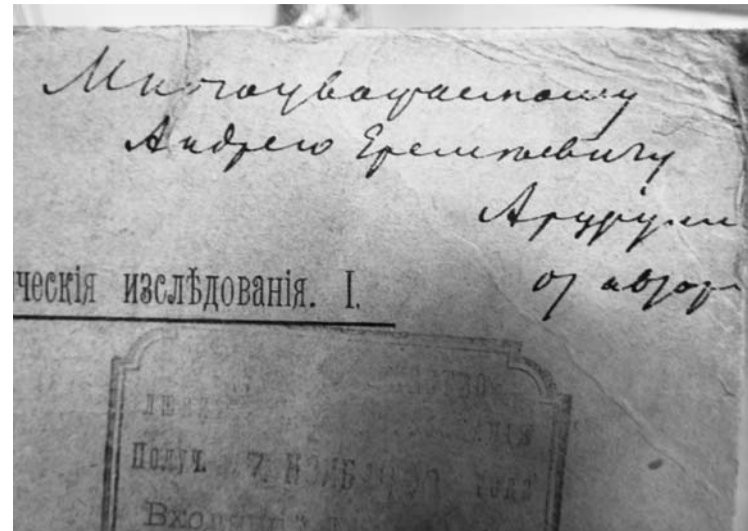 Многоуважаемому
Андрею Еремеевичу
Арцруни
от автора
ческія изслѣдованія. I.
Получ. 7 НОЯБ года